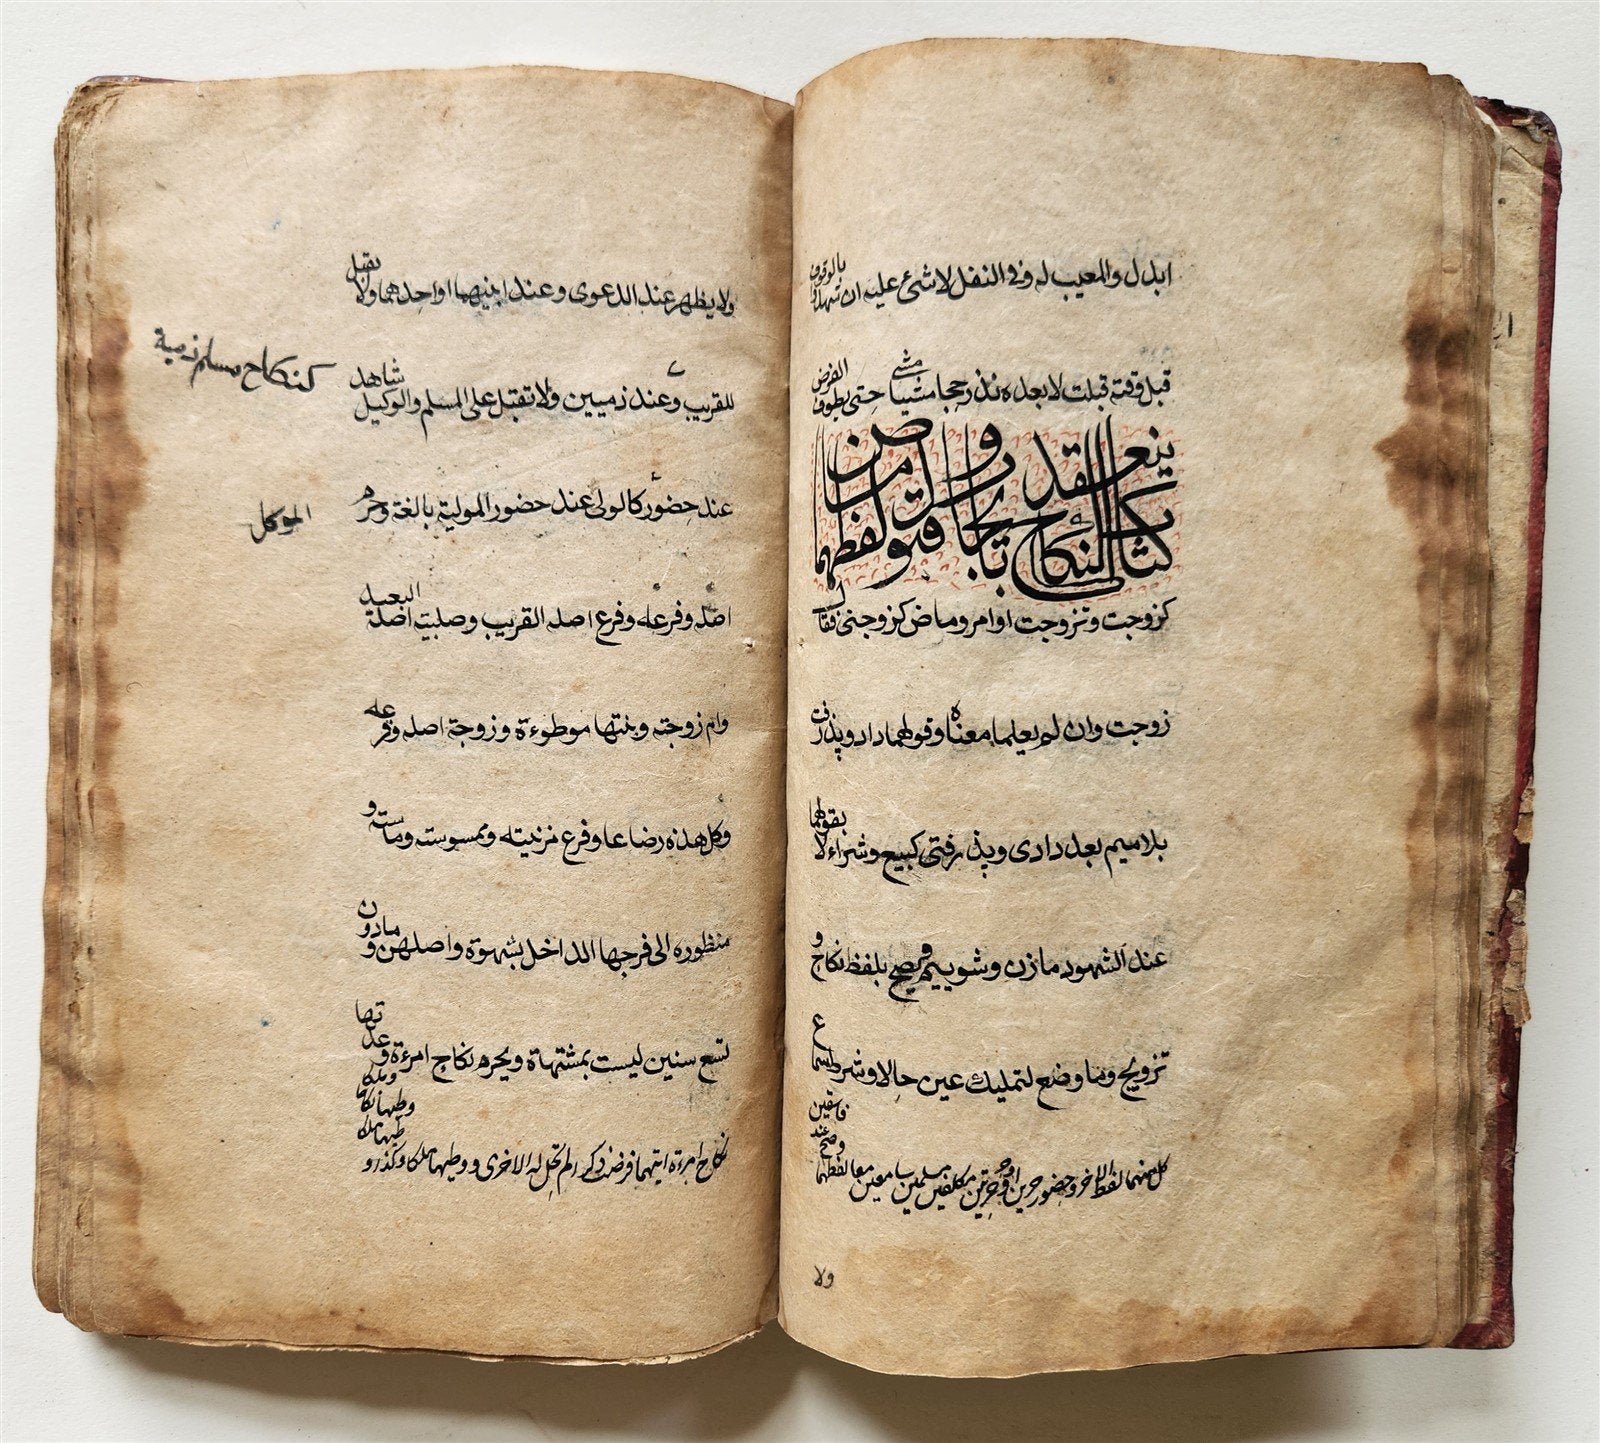 ابدل والمعيب له وفى النفل لا شئ عليه ان شهدوا بالوقوف
قبل وقته قبلت لا بعده نذر حجا مشيا مشى حتى يطوف الفرض
كتاب النكاح ينعقد بايجاب وقبول لفظهما ماض
كزوجت وتزوجت او امر وماض كزوجنى فقال
زوجت وان لم يعلما معناه وقولهما داد و پذرفت
بلا ميم بعد دادى و پذرفتى كبيع وشراء لا بقولهما
عند الشهود ما زن وشوييم ويصح بلفظ نكاح و
تزويج وما وضع لتمليك عين حالا وشرط سماع
كل منهما لفظ الاخر وحضور حرين او حر وحرتين مكلفين مسلمين سامعين معا لفظهما وصح عند فاسقين
ولا
ولا يظهر عند الدعوى وعند ابنيهما او احدهما ولا يقبل
للقريب وعند ذميين ولا تقبل على المسلم والوكيل شاهد
كنكاح مسلم ذمية
عند حضور كالولى عند حضور المولية بالغة وحرم
الموكل
اصله وفرعه وفرع اصله القريب وصلبية اصله البعيد
وام زوجته وبنتها موطوءة وزوجة اصله وفرعه
وكل هذه رضاعا وفرع مزنيته وممسوسته وماسته و
منظوره الى فرجها الداخل بشهوة واصلهن وما دون
تسع سنين ليست بمشتهاة ويحرم نكاح امرءة وعدتها
نكاح امرءة ايتهما فرضت ذكرا لم تحل له الاخرى ووطيها ملكا وكذا